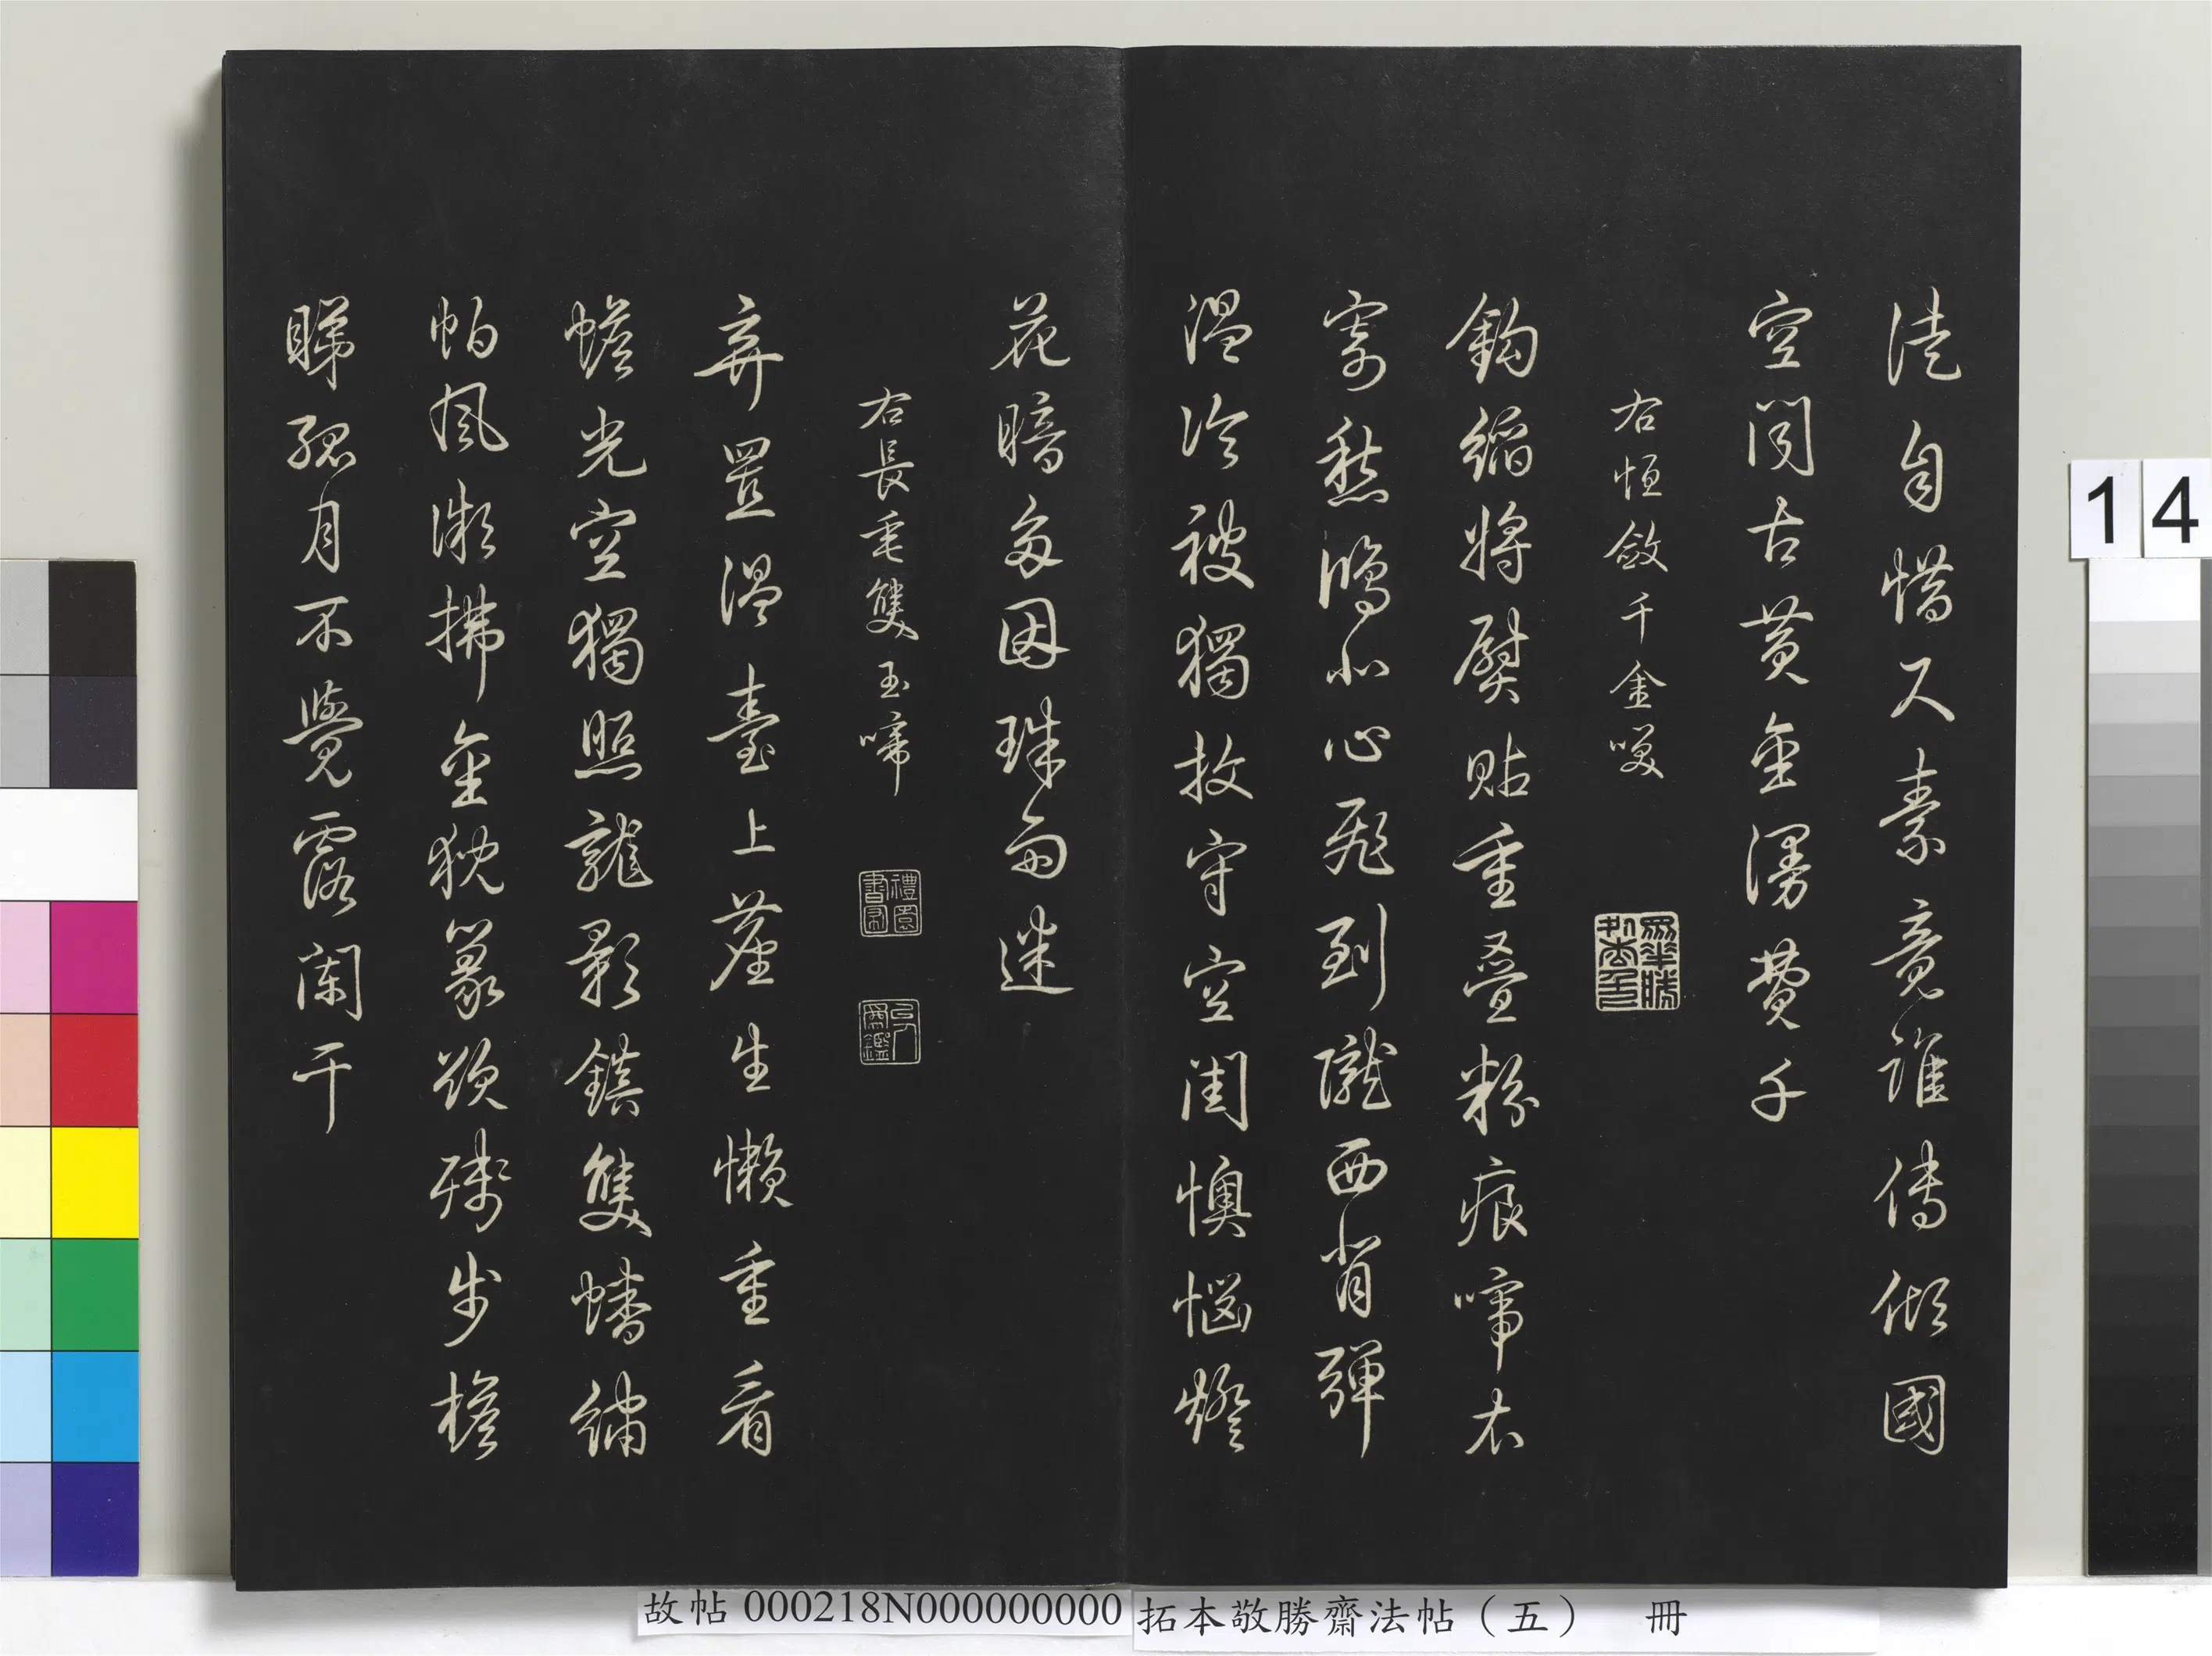 徒自惜尺素竟誰傳傾國
空聞古黃金漫費千
右恒斂千金笑
鈎縚將熨貼重疊粉痕啼衣
寄愁鴻北心飛到隴西背彈
溫冷被獨守空閨懊惱燈
花暗多因珠雨迷
右長垂雙玉啼
弃置溫臺上塵生懶重看
蟾光空獨照龍影鎮雙蟠繡
帕風漸拂金猊篆欲殘步檐
睇孤月不覺露闌干
14
故帖000218N000000000
拓本敬勝齋法帖（五） 冊